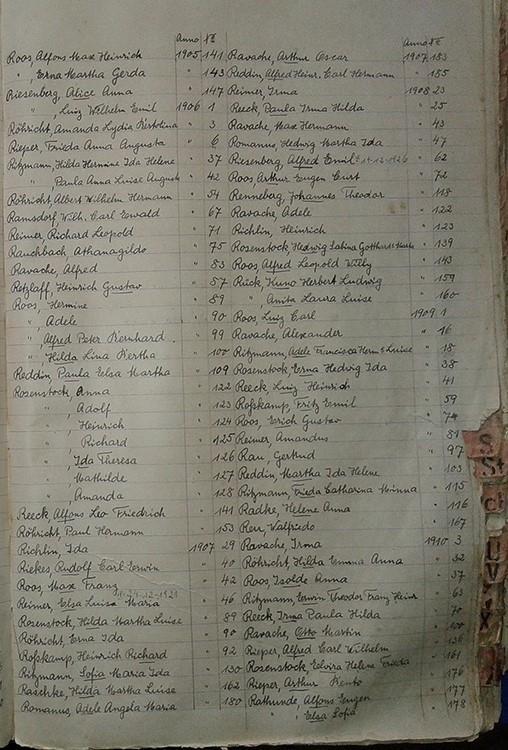 Anno №
Roos, Alfons Max Heinrich 1905 141
", Erna Martha Gerda " 143
Riesenberg, Alice Anna " 147
", Luiz Wilhelm Emil 1906 1
Röhricht, Amanda Lydia Bertolina " 3
Rieper, Frieda Anna Augusta " 6
Ritzmann, Hilda Hermine Ida Helene " 37
", Paula Anna Luise Auguste " 42
Röhricht, Albert Wilhelm Hermann " 54
Ramsdorf, Wilh. Carl Ewald " 67
Reimer, Richard Leopold " 71
Rauchbach, Athanagildo " 75
Ravache, Alfred " 83
Retzlaff, Heinrich Gustav " 87
Roos, Hermine " 89
", Adele " 90
", Alfred Peter Bernhard " 99
", Hilda Lina Bertha " 100
Reddin, Paula Elsa Martha " 109
Rosenstock, Anna " 122
", Adolf " 123
", Heinrich " 124
", Richard " 125
", Ida Theresa " 126
", Mathilde " 127
", Amanda " 128
Reeck, Alfons Leo Friedrich " 141
Röhricht, Paul Hermann " 153
Richlin, Ida 1907 29
Riekes, Rudolf Carl Erwin " 40
Roos, Max Franz " 42
Reimer, Elsa Luise Maria " 46
Rosenstock, Hilda Martha Luise " 89
Röhricht, Erna Ida " 90
Roßkamp, Heinrich Richard " 92
Ritzmann, Sofia Maria Ida " 130
Raschke, Hilda Martha Luise " 162
Romanus, Adele Angela Maria " 180
Anno №
Ravache, Arthur Oscar 1907 183
Reddin, Alfred Heinr. Carl Hermann " 185
Reimer, Irma 1908 23
Reeck, Paula Irma Hilda " 25
Ravache, Max Hermann " 43
Romanus, Hedwig Martha Ida " 47
Riesenberg, Alfred Emil " 62
Roos, Arthur Eugen Curt " 72
Renneberg, Johannes Theodor " 118
Ravache, Adele " 122
Richlin, Heinrich " 123
Rosenstock, Hedwig Sabina " 139
Roos, Alfred Leopold Willy " 143
Rück, Kuno Herbert Ludwig " 159
", Anita Laura Luise " 160
Roos, Luiz Carl 1909 1
Ravache, Alexander " 16
Ritzmann, Adele Francisca Herm. Luise " 18
Rosenstock, Erna Hedwig Ida " 38
Reeck, Luiz Heinrich " 41
Roßkamp, Fritz Emil " 59
Roos, Erich Gustav " 74
Reimer, Amandus " 81
Rau, Gertrud " 97
Reddin, Martha Ida Helene " 103
Ritzmann, Frieda Catharina Minna " 115
Radke, Helene Anna " 116
Rerr, Walfriedo " 167
Ravache, Irma 1910 3
Röhricht, Hilda Emma Anna " 32
Roos, Isolde Anna " 37
Ritzmann, Erwin Theodor Franz Heinr " 63
Reeck, Irma Paula Hilda " 70
Ravache, Otto Martin "
Rieper, Alfred Carl Wilhelm "
Rosenstock, Elvira Helene Frieda " 161
Rieper, Arthur " 176
Rathunde, Alfons Eugen " 177
", Elsa Sofia " 178
S
St
U
V
X